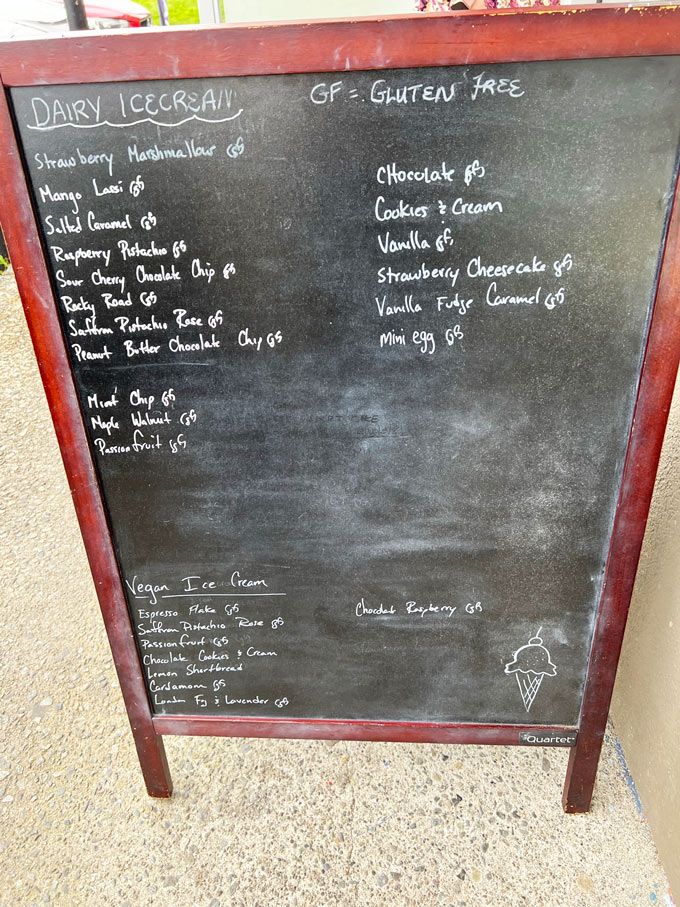 DAIRY ICECREAM
GF = GLUTEN FREE
Strawberry Marshmallow GF
Mango Lassi GF
Salted Caramel GF
Raspberry Pistachio GF
Sour Cherry Chocolate Chip GF
Rocky Road GF
Saffron Pistachio Rose GF
Peanut Butter Chocolate Chip GF
Mint Chip GF
Maple Walnut GF
Passionfruit GF
CHocolate GF
Cookies & Cream
Vanilla GF
Strawberry Cheesecake GF
Vanilla Fudge Caramel GF
Mini egg GF
Vegan Ice Cream
Espresso Flake GF
Saffron Pistachio Rose GF
Passionfruit GF
Chocolate Cookies & Cream
Lemon Shortbread
Cardamom GF
London Fog & Lavender GF
Chocolate Raspberry GF
Quartet